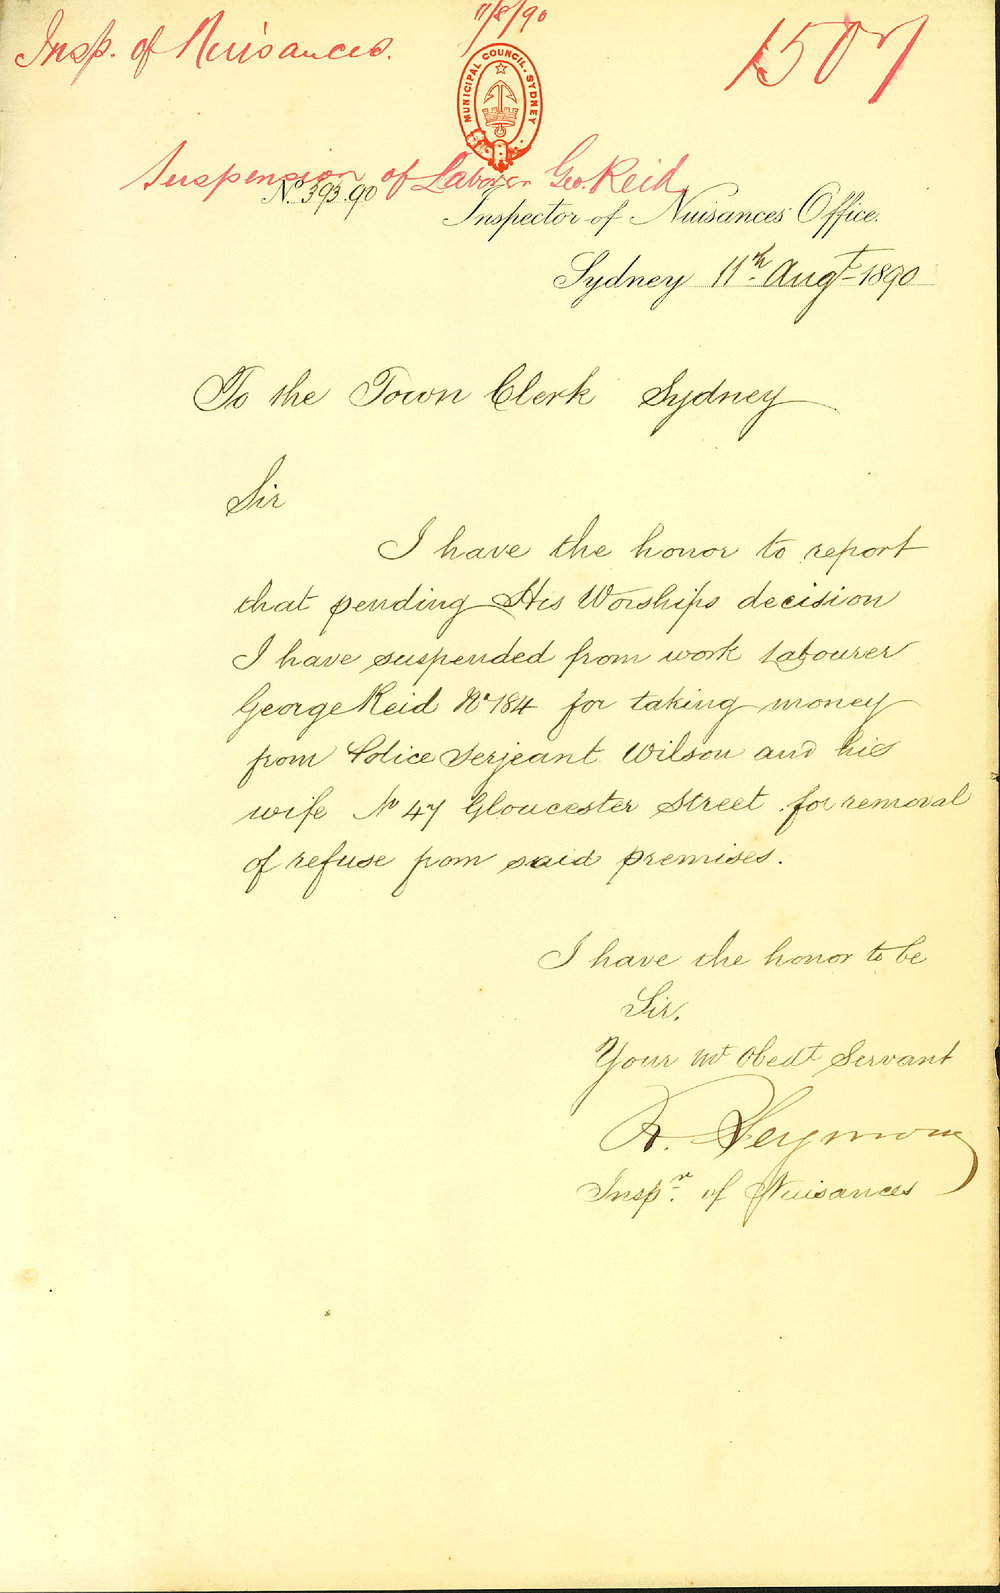 11/8/90
Insp. of Nuisances.
1507
MUNICIPAL COUNCIL. SYDNEY
Suspension of Laborer Geo. Reid
No. 393.90
Inspector of Nuisances Office.
Sydney 11th Augt 1890
To the Town Clerk Sydney
Sir
I have the honor to report
that pending His Worships decision
I have suspended from work labourer
George Reid No 184 for taking money
from Police Serjeant Wilson and his
wife No 47 Gloucester Street for removal
of refuse from said premises.
I have the honor to be
Sir,
Your mt Obedt Servant
R. Seymour
Inspr. of Nuisances